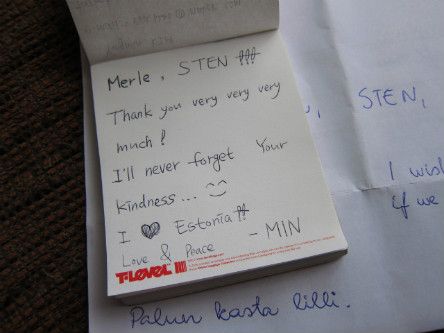 Merle, STEN !!!
Thank you very very very
much!
I'll never forget Your
kindness...
I ♥ Estonia !!
Love & Peace - MIN
T-LEVEL
STEN,
I wish
if we
Palun kasta lilli.